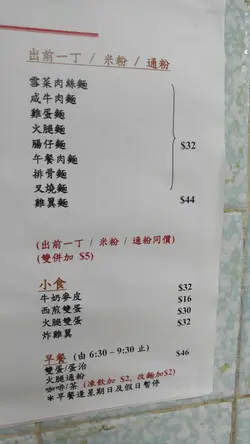 出前一丁 / 米粉 / 通粉
雪菜肉絲麵
咸牛肉麵
雞蛋麵
火腿麵
腸仔麵
午餐肉麵
排骨麵
叉燒麵
$32
雞翼麵 $44
(出前一丁 / 米粉 / 通粉同價)
(雙併加 $5)
小食 $32
牛奶麥皮 $16
西煎雙蛋 $30
火腿雙蛋 $32
炸雞翼
早餐 (由 6:30 – 9:30 止) $46
雙蛋/蛋治
火腿通粉
咖啡/茶 (凍飲加 $2, 改麵加$2)
*早餐逢星期日及假日暫停